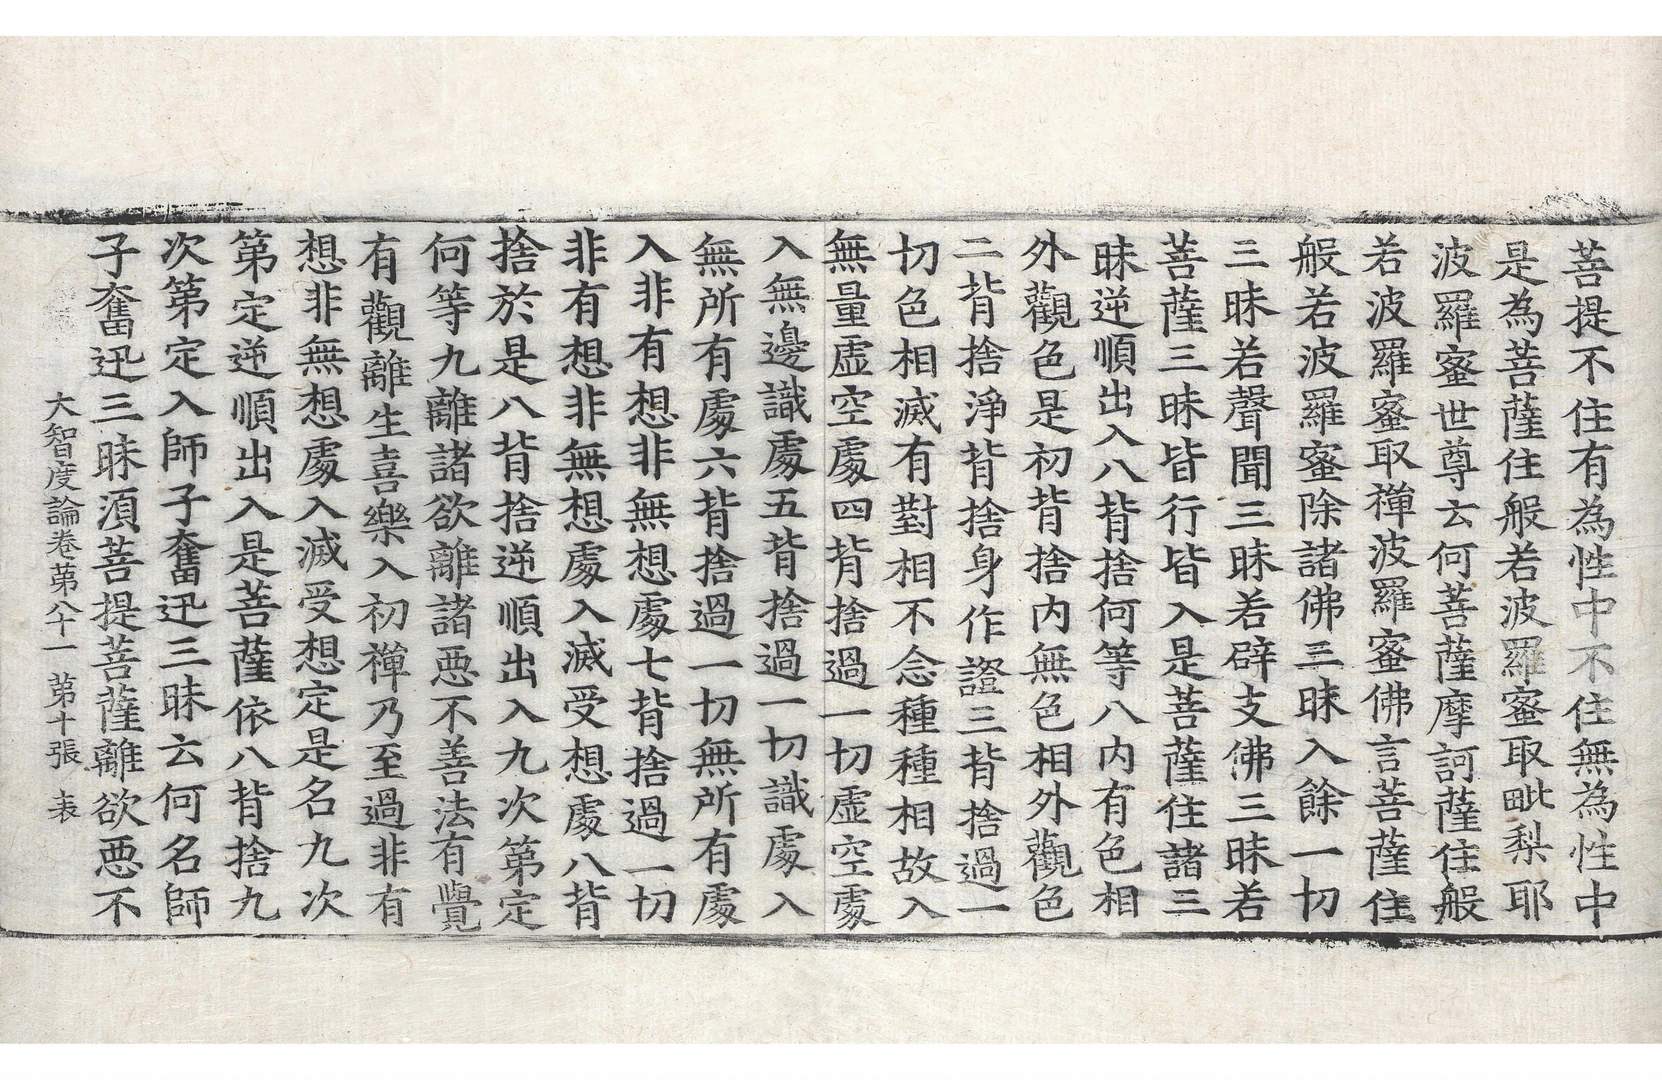 菩提不住有為性中不住無為性中
是為菩薩住般若波羅蜜取毗梨耶
波羅蜜世尊云何菩薩摩訶薩住般
若波羅蜜取禪波羅蜜佛言菩薩住
般若波羅蜜除諸佛三昧入餘一切
三昧若聲聞三昧若辟支佛三昧若
菩薩三昧皆行皆入是菩薩住諸三
昧逆順出入八背捨何等八內有色相
外觀色是初背捨內無色相外觀色
二背捨淨背捨身作證三背捨過一
切色相滅有對相不念種種相故入
無量虛空處四背捨過一切虛空處
入無邊識處五背捨過一切識處入
無所有處六背捨過一切無所有處
入非有想非無想處七背捨過一切
非有想非無想處入滅受想處八背
捨於是八背捨逆順出入九次第定
何等九離諸欲離諸惡不善法有覺
有觀離生喜樂入初禪乃至過非有
想非無想處入滅受想定是名九次
第定逆順出入是菩薩依八背捨九
次第定入師子奮迅三昧云何名師
子奮迅三昧須菩提菩薩離欲惡不
大智度論卷第八十一 第十張 表